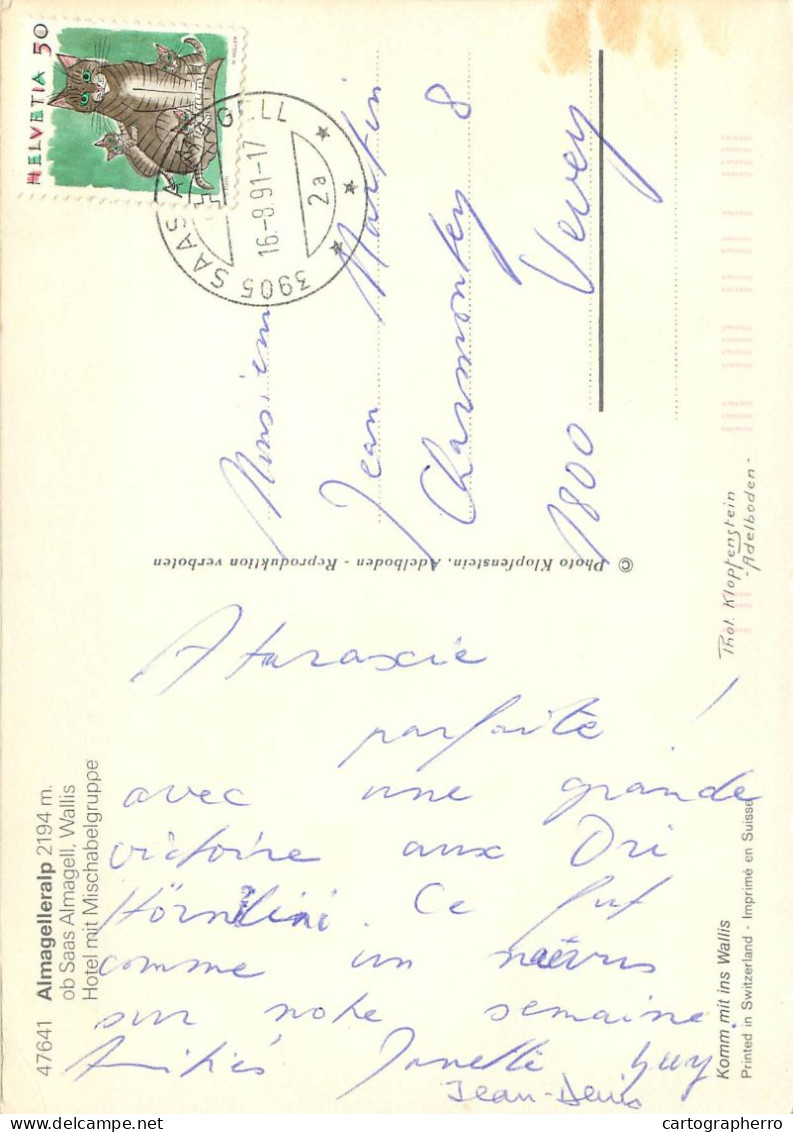 HELVETIA 50
3905 SAAS ALMAGELL
16.-8.91-17
2a
Monsieur
Jean Martin
Charmontey 8
1800 Vevey
© Photo Klopfenstein, Adelboden - Reproduktion verboten
Phot. Klopfenstein
- Adelboden -
47641 Almagelleralp 2194 m.
ob Saas Almagell, Wallis
Hotel mit Mischabelgruppe
Ataraxie
parfaite !
avec une grande
victoire aux Dri
Hörnlini. Ce fut
comme un
sur notre semaine
Amitiés Guy
Jean-Denis
Komm mit ins Wallis
Printed in Switzerland - Imprimé en Suisse
cartographerro